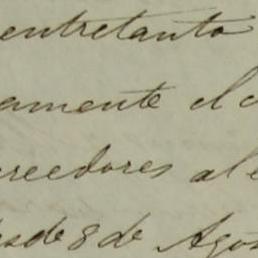 entretanto
amente el c
creedores al e
desde 8 de Agos